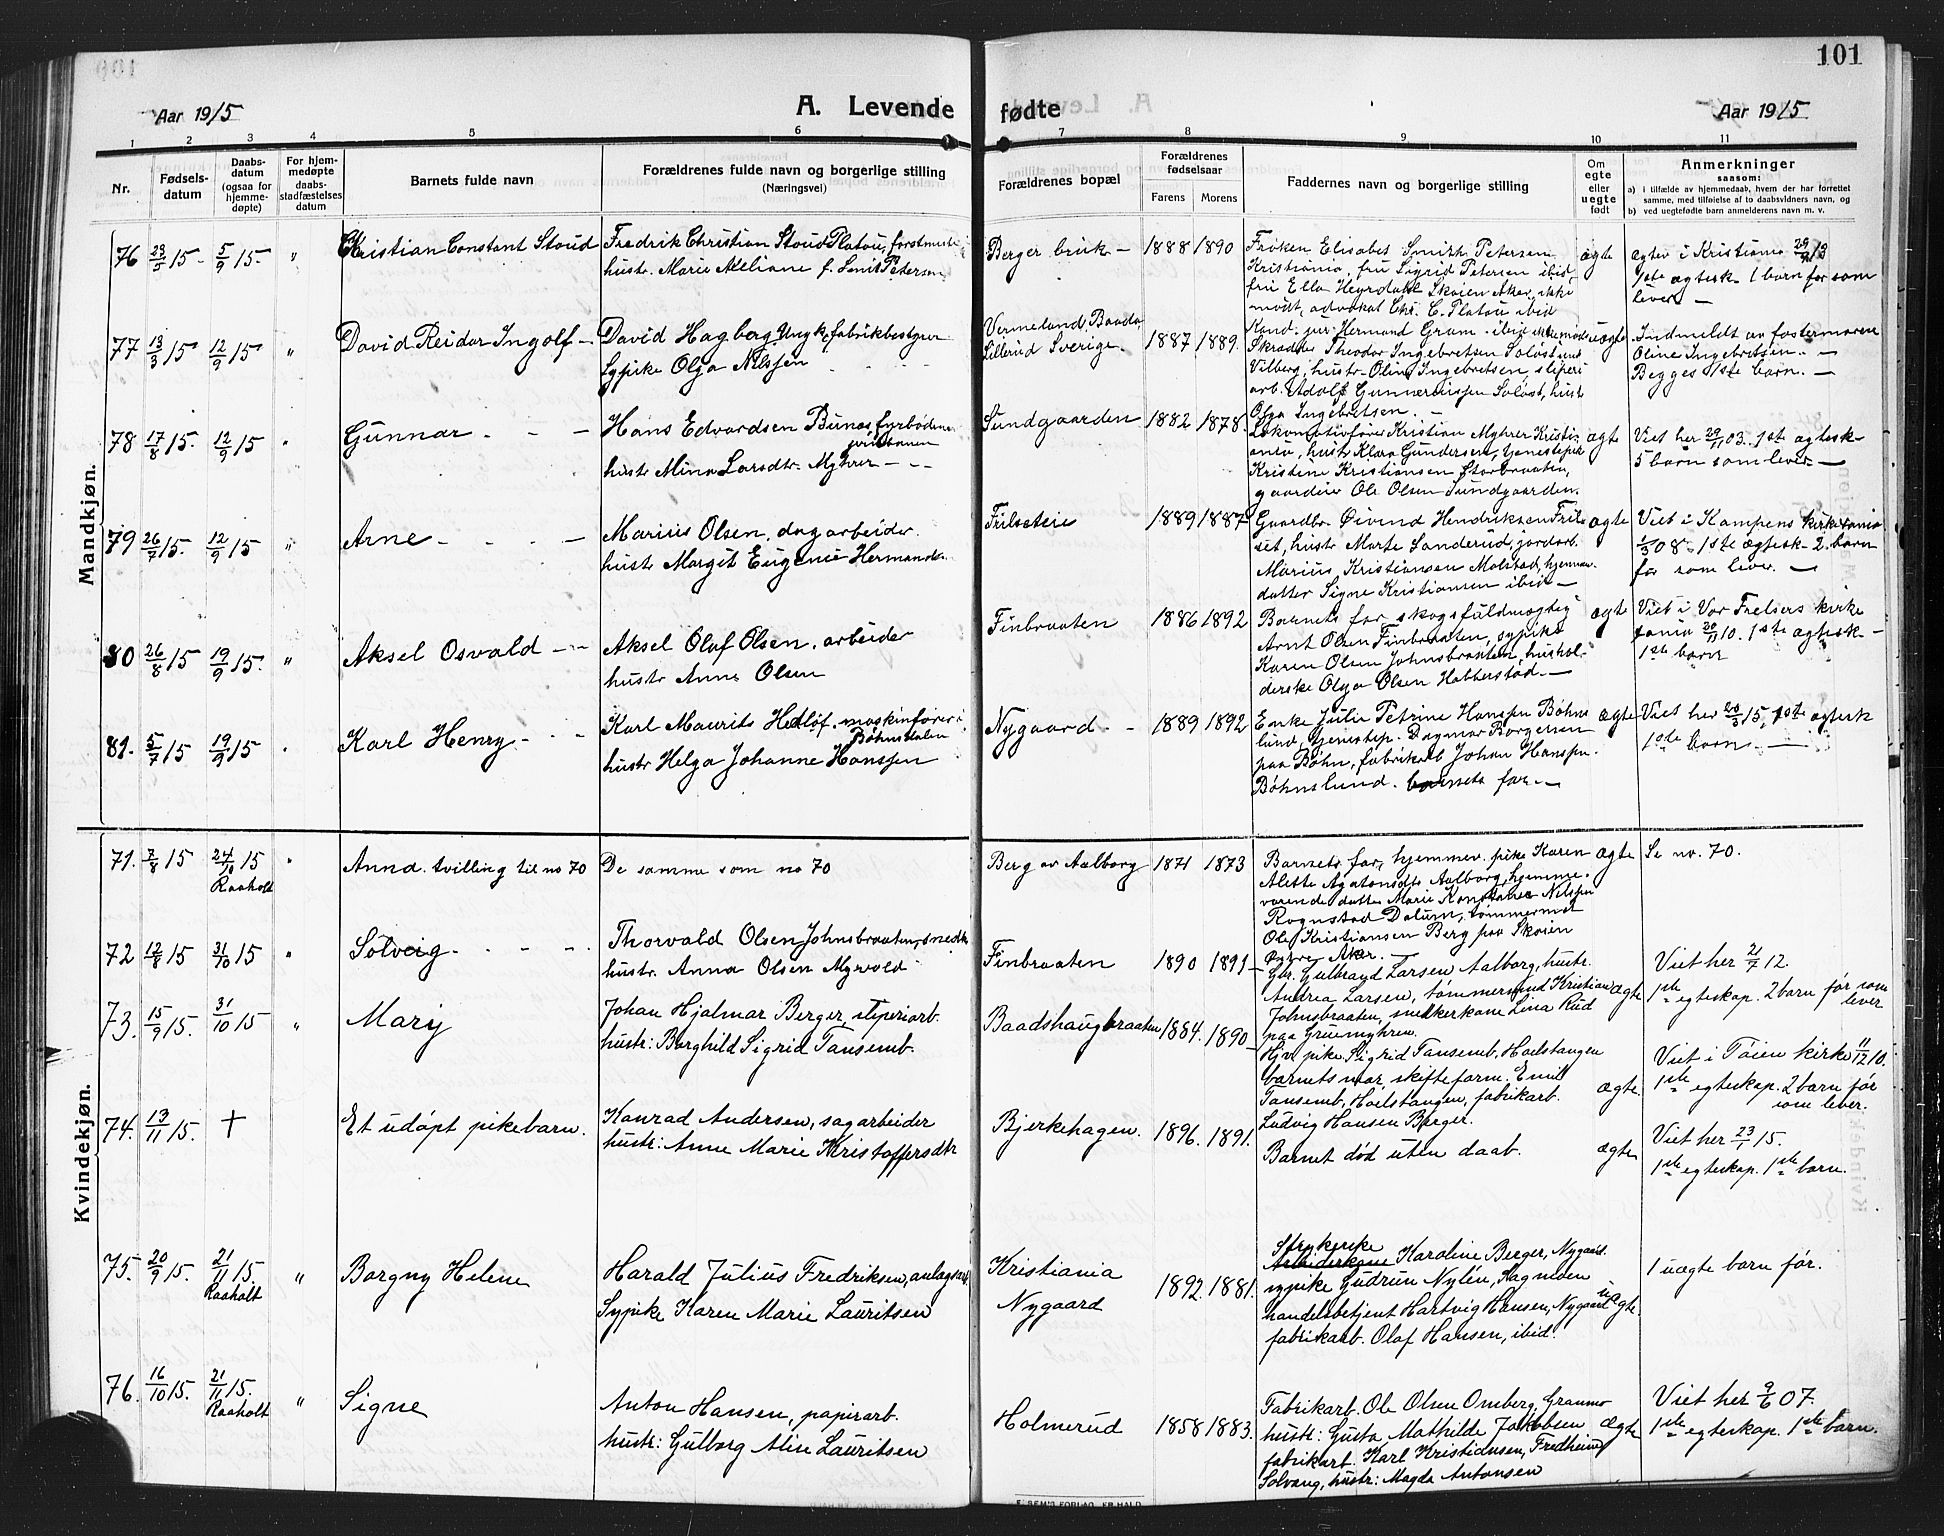 101
Aar 1915
A. Levende fødte
Aar 1915
1 2 3 4 5 6 7 8 9 10 11
Nr.
Fødsels-
datum
Daabs-
datum
(ogsaa for
hjemme-
døpte)
For hjem-
medøpte
daabs-
stadfæstelses
datum
Barnets fulde navn
Forældrenes fulde navn og borgerlige stilling
(Næringsvei)
Forældrenes bopæl
Forældrenes
fødselsaar
Farens Morens
Faddernes navn og borgerlige stilling
Om
egte
eller
uegte
født
Anmerkninger
saasom:
a) i tilfælde av hjemmedaab, hvem der har forrettet
samme, med tilføielse af to daabsvidners navn, og
b) ved uegtefødte barn anmelderens navn m. v.
Mandkjøn.
76 23/5 15 - 5/9 15 - "
Kristian Constant Stoud
Fredrik Christian Stoud Platou, forstmester
hustr. Marie f. Smit Petersen
Berger bruk -
1888 1890
Frøken Elisabet Smith Petersen
Kristiania, fru Sigrid Petersen ibid
fru Ella Heyrdahl Skøien Aker, ikke
mødt, advokat Chr. C. Platou ibid
Kand. jur. Hermand Gram - ibid
ægte
ægtev i Kristiania
1ste ægtesk. 1 barn før som
lever -
77 13/3 15 12/9 15 "
David Reidar Ingolf -
David Hagberg Ungk. fabrikbestyrer
sypike Olga Nilssen
Vermeland,
Lillerud Sverige.
1887 1889
Skrædder Theodor Ingebretsen
Vilberg, hustr. Oline Ingebretsen, sliperi
arb. Adolf Gunnerniussen Soløst, hustr
Olga Ingebretsen. -
uægte
Indmeldt av fostermoren
Oline Ingebretsen. -
Begges 1ste barn. -
78 17/8 15. 12/9 15 "
Gunnar - - -
Hans Edvardsen Bunes fyrbøder
hustr Mina Larsdtr. Myhrer - -
Sundgaarden
1882 1878.
Lokomotivfører Kristian Myhrer Kristi-
ania, hustr Klara Gundersen, tjenestepike
Kristine Kristiansen Storbraaten,
gaardeier Ole Olsen Sundgaarden.
ægte
Viet her 29/11 03. 1ste ægtesk -
5 barn som lever. -
79 26/7 15. 12/9 15 "
Arne - - - -
Marius Olsen, dagarbeider
hustr Margit Eugenie Hermansdtr.
Frilseteie
1889 1887
Gaardbr. Øivind Hendriksen Fril-
set, hustr Marte Sanderud, jordarb.
Marius Kristiansen Molstad, hjemmev.
datter Signe Kristiansen ibid -
ægte
Viet i Kampens kirke Kania
1/3 08. 1ste ægtesk - 2 barn
før som lever. -
80 26/8 15 19/9 15. "
Aksel Osvald - -
Aksel Olaf Olsen. arbeider
hustr Anna Olsen
Finbraaten
1886 1892
Barnets far, skogsfuldmægtig
Arnt Olsen Finbraaten, sypike
Karen Olsen Johnsbraaten, hushol-
derske Olga Olsen Habberstad. -
ægte
Viet i Vor Frelsers kirke
Kania 20/11 10. 1ste ægtesk -
1ste barn
81. 5/7 15 19/9 15
Karl Henry - - -
Karl Maurits Hedlöf. maskinfører i
Bøhnsdalen
hustr Helga Johanne Hanssen
Nygaard - -
1889 1892
Enke Julie Petrine Hanssen Bøhns
lund, tjenestep. Dagmar Borgersen
paa Bøhn, fabrikarb Johan Hanssen.
Bøhnslund. barnets far -
ægte
Viet her 20/3 15, 1ste ægtesk
1ste barn. -
Kvindekjøn.
71. 7/8 15 24/10 15 "
Raaholt
Anna. tvilling til no 70
De samme som no 70
Berg av Aalborg
1871 1873
Barnets far, hjemmev. pike Karen
Alette Agatonsdtr Aalborg, hjemme-
værende datter Marie Konstanse Nilssen
Rognstad Dalum, tømmermd
Ole Kristiansen Berg paa Skøien
Østre Aker. -
ægte
Se no. 70.
72 12/8 15 31/10 15 "
Solveig - - - -
Thorvald Olsen Johnsbraaten, snedk
hustr. Anna Olsen Myrvold
Finbraaten
1890 1891 -
Gbr. Gulbrand Larsen Aalborg, hustr.
Andrea Larsen, tømmermand Kristian
Johnsbraaten, snedkerkone Lina Rud
paa Gruemyhren.
ægte
Viet her 21/7 12.
1ste egteskap. 2 barn før som
lever
73. 15/9 15. 31/10 15 "
Mary
Johan Hjalmar Berger, sliperiarb.
hustr: Borghild Sigrid Tansemb.
Baadshaugbraaten
1884. 1890 -
Hjv. pike Sigrid Tansemb, Hoelstangen
barnets mor, skifteform. Emil
Tansemb, Hoelstangen, fabrikarb.
Ludvig Hansen Berger.
ægte
Viet i Tøien kirke 11/12 10.
1ste egteskap. 2 barn før
som lever.
74. 13/11 15. †
Et udøpt pikebarn.
Konrad Andersen, sagarbeider
hustr: Anne Marie Kristoffersdtr
Bjerkehagen.
1896. 1891.
Barnet død uten daab.
ægte
Viet her 23/1 15.
1ste egteskap. 1ste barn.
75. 20/9 15. 21/11 15. "
Raaholt
Borgny Helene
Harald Julius Fredriksen, anlægsarb
Sypike Karen Marie Lauritsen
Kristiania
Nygaard
1892. 1881.
Strykerike
Arbeiderkone Karoline Berger, Nygaard.
sypike Gudrun Nylén, Sagmoen
handelsbetjent Hartvig Hansen, Nygaard
fabrikarb. Olaf Hansen, ibid.
uægte.
1 uægte barn før.
76. 16/10 15. 21/11 15. "
Raaholt
Signe
Anton Hansen, papirarb.
hustr: Gulborg Aline Lauritsen
Holmerud
1858 1883.
Fabrikarb. Ole Olsen Omberg, Granmo
hustr: Gusta Mathilde Jakobsen
fabrikarb. Karl Kristiansen, Fredheim
Solvang, hustr: Magda Antonsen
ægte
Viet her 9/6 07.
1ste egteskap. 1ste barn.
E. SEM'S FORLAG, FR.HALD